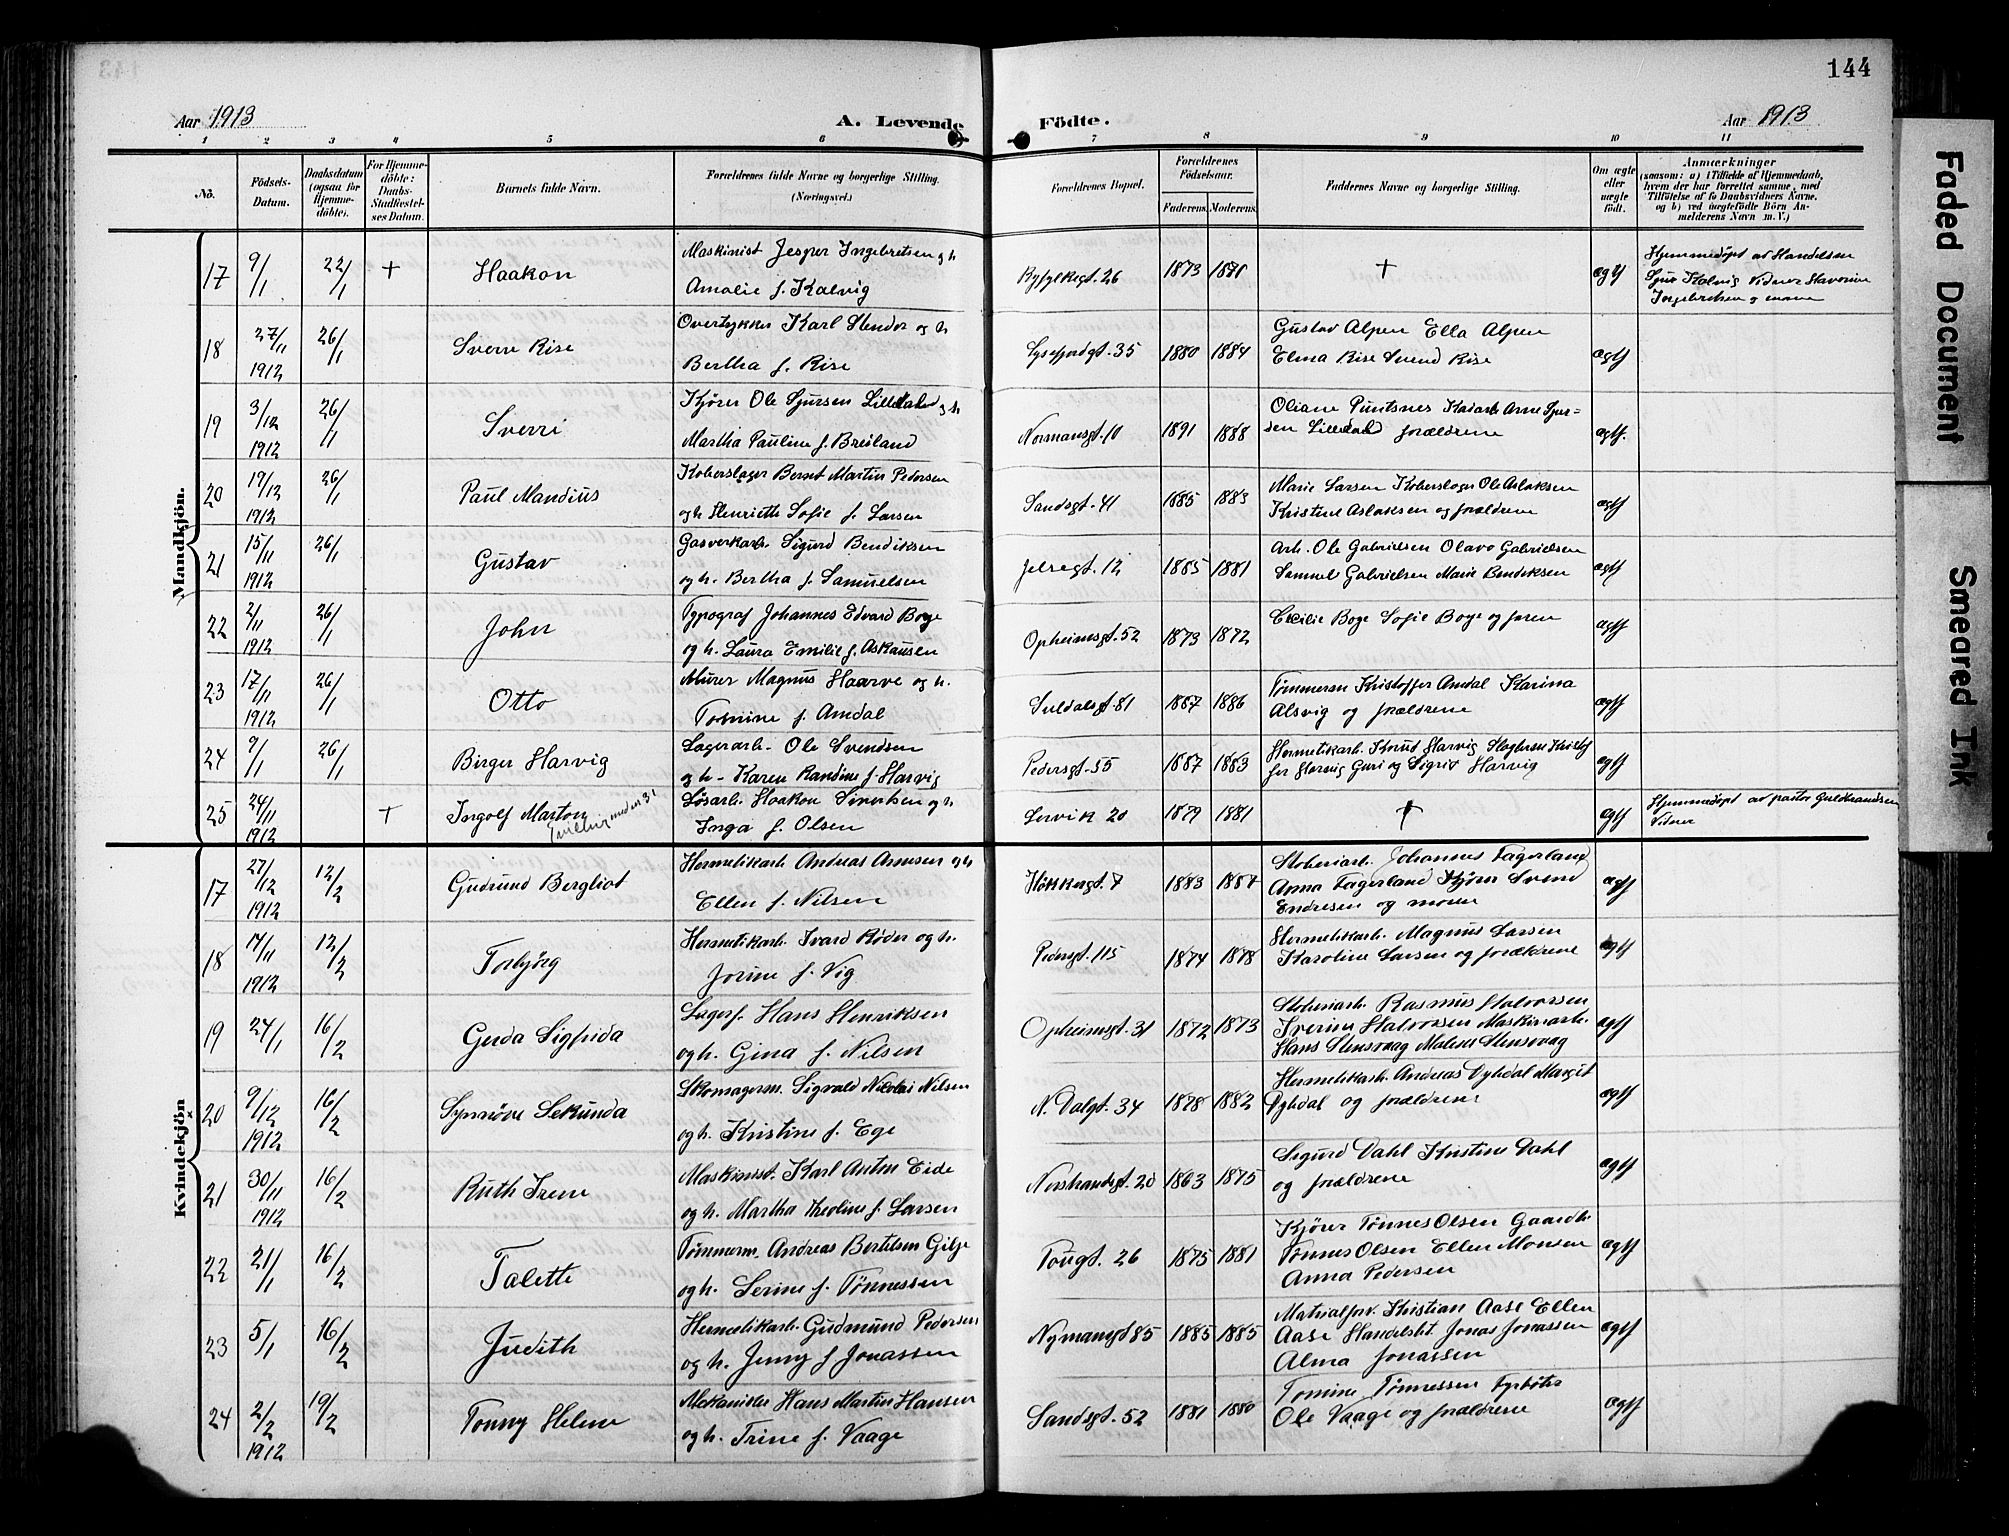 144
Aar 1913
A. Levende Födte.
Aar 1913
1 2 3 4 5 6 7 8 9 10 11
No.
Födsels-Datum.
Daabsdatum (ogsaa for Hjemmedöbte).
For Hjemmedöbte: Daabs-Stadfæstelses Datum.
Barnets fulde Navn.
Forældrenes fulde Navne og borgerlige Stilling. (Næringsvei.)
Forældrenes Bopæl.
Forældrenes Födselsaar.
Faderens. Moderens.
Faddernes Navne og borgerlige Stilling.
Om ægte eller uægte födt.
Anmærkninger
(saasom: a) i Tilfælde af Hjemmedaab, hvem der har forrettet samme, med Tilföielse af to Daabsvidners Navne, og b) ved uægtefödte Börn Anmelderens Navn m. V.)
Mandkjön.
17 9/1 22/1 + Haakon Maskinist Jesper Ingebretsen og h Amalie f. Kalvig Ryfylkegt. 26 1873 1871 + ægtf Hjemmedöpt av Handelsm Sjur Kalvig Vidner Ingebretsen og moren
18 27/11 1912 26/1 Sverre Rise Karl Stendor og h Bertha f. Rise Lysefjordgt. 35 1880 1884 Gustav Alpen Ella Alpen Elma Rise Svend Rise ægtf
19 3/12 1912 26/1 Sverri Kjörer Ole Sjursen Lilledahl og h Martha Pauline f. Breiland Normansgt. 10 1891 1888 Oliane Puntsnes Arne Sjursen Lilledal forældrene ægtf.
20 19/12 1912 26/1 Paul Mandius Koberslager Bernet Martin Pedersen og h Henriette Sofie f. Larsen Sandsgt. 41 1885 1883 Marie Larsen Koberslager Ole Aslaksen Kristine Aslaksen og forældrene ægtf
21 15/11 1912 26/1 Gustav Gasverkarb. Sigurd Bendiksen og h. Bertha f. Samuelsen Jelsegt. 12 1885 1881 Arb. Ole Gabrielsen Olava Gabrielsen Samuel Gabrielsen Marie Bendiksen ægtf
22 2/11 1912 26/1 John Typograf Johannes Edvard Boge og h. Laura Emilie f. Askausen Opheimsgt. 52 1873 1872 Cecilie Boge Sofie Boge og faren ægtf
23 17/11 1912 26/1 Otto Murer Magnus Haarve og h. Tomine f. Amdal Suldalsgt. 81 1887 1886 Tömmerm Kristoffer Amdal Karina Alsvig og forældrene ægtf
24 9/1 26/1 Birger Harvig Lagerarb. Ole Svendsen og h. Karen Randine f. Harvig Pedersgt. 55 1887 1883 Hermetikarb. Knud Harvig Harvig Guri og Sigrid Harvig ægtf
25 24/11 1912 + Ingolf Marton Lösarb. Haakon Sivertsen og h Inga f. Olsen Lervik 20 1879 1881 + ægtf Hjemmedöpt av pastor Guldbrandsen Vidner
Kvindekjön
17 27/12 1912 12/2 Gudrund Bergliot Hermetikarb. Andreas Arnesen og h Ellen f. Nilsen Hökkergt. 7 1883 1887 Stoheriarb. Johannes Fagerland Anna Fagerland Kjörer Svend Endresen og moren ægtf
18 14/11 1912 12/2 Torbjörg Hermetikarb. Ivard Röder og h. Jorine f. Vig Pedersgt. 115 1874 1878 Hermetikarb. Magnus Larsen Karoline Larsen og forældrene ægtf
19 24/1 16/2 Gerda Sigfrida Lagerf. Hans Henriksen og h. Gina f. Nilsen Opheimsgt. 31 1872 1873 Stoheriarb. Rasmus Halvorsen Iverine Halvorsen Maskinarb. Hans Stensvaag Malene Stensvaag ægtf
20 9/12 1912 16/2 Synnöve Sekunda Skomagerm. Sigvald Nikolai Nilsen og h. Kristine f. Ege N. Dalgt. 34 1878 1882 Hermetikarb. Andreas Dyhdal Margit Dyhdal og forældrene ægtf
21 30/11 1912 16/2 Ruth Irene Maskinist. Karl Anton Eide og h. Martha Theoline f. Larsen Nordrandsgt. 20 1863 1875 Sigurd Dahl Kristine Dahl og forældrene ægtf
22 21/1 16/2 Talette Tömmerm. Andreas Bertelsen Gilje og h. Serine f. Tönnessen Tougt. 26 1875 1881 Kjörer Tönnes Olsen Gaardb. Tönnes Olsen Ellen Monsen Anna Pedersen ægtf
23 5/1 16/2 Judith Hermetikarb. Gudmund Pedersen og h. Jenny f Jonassen Nymansgt 85 1885 1885 Matrialforv. Kristian Aase Ellen Aase Handelsbt. Jonas Jonassen Alma Jonassen ægtf
24 2/2 1912 19/2 Tonny Helene Mekaniker Hans Martin Hansen og h. Trine f. Vaage Sandsgt. 52 1881 1880 Tomine Tönnessen Fyrböter Ole Vaage og forældrene ægtf
Faded Document
Smeared Ink